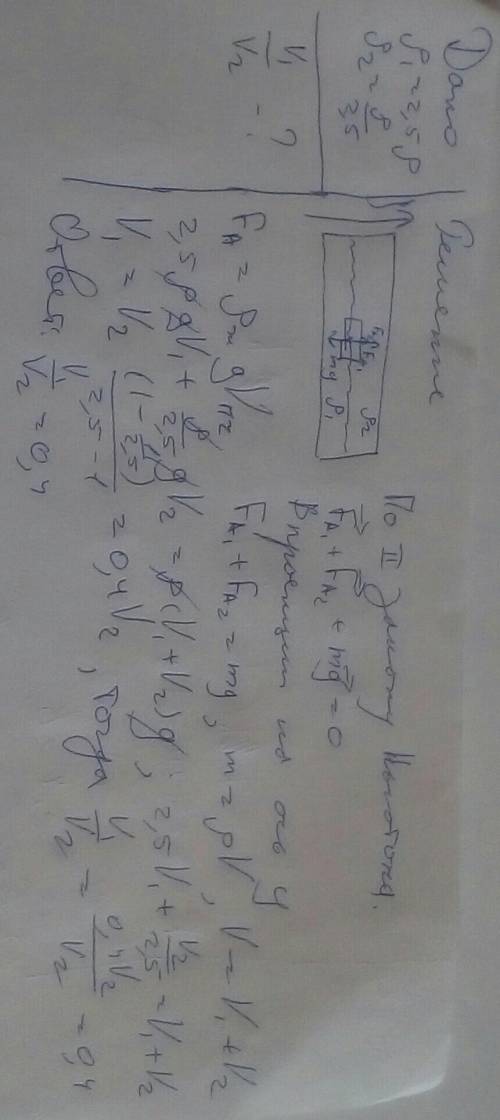 Дано
ρ₁ = 2,5ρ
ρ₂ = ρ/2,5
V₁/V₂ - ?
Решение
ρ₂
F_A₂ F_A₁
mg ρ₁
По II закону Ньютона.
F⃗_A₁ + F⃗_A₂ + mg⃗ = 0
В проекции на ось y
F_A = ρ_ж gV_пг, F_A₁ + F_A₂ = mg, m = ρV, V = V₁ + V₂
2,5ρgV₁ + ρ/2,5 gV₂ = ρ(V₁ + V₂)g; 2,5V₁ + V₂/2,5 = V₁ + V₂
V₁ = V₂ (1 - 1/2,5)/(2,5 - 1) = 0,4V₂, тогда V₁/V₂ = 0,4V₂/V₂ = 0,4
Ответ: V₁/V₂ = 0,4